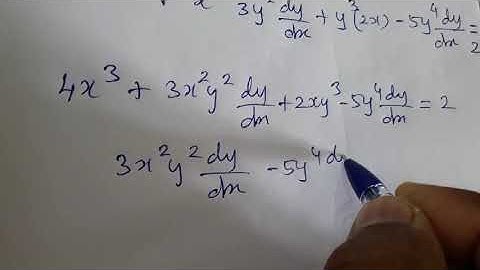 x² 3y² dy/dx + y³(2x) - 5y⁴ dy/dx = 2
4x³ + 3x²y² dy/dx + 2xy³ - 5y⁴ dy/dx = 2
3x²y² dy/dx - 5y⁴ d